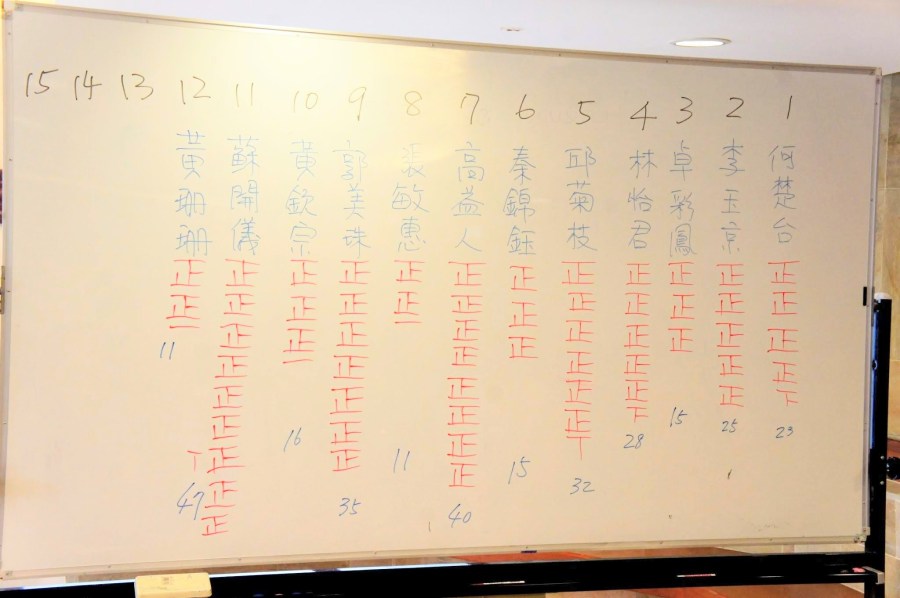 1
何楚台
正正正正下
23
2
李玉京
正正正正正
25
3
卓彩鳳
正正正
15
4
林怡君
正正正正正下
28
5
邱菊枝
正正正正正正丅
32
6
秦錦鈺
正正正
15
7
高益人
正正正正正正正正
40
8
裴敏惠
正正一
11
9
郭美珠
正正正正正正正
35
10
黃欽宗
正正正一
16
11
蘇開儀
正正正正正正正正正丅
47
12
黃珊珊
正正一
11
13
14
15